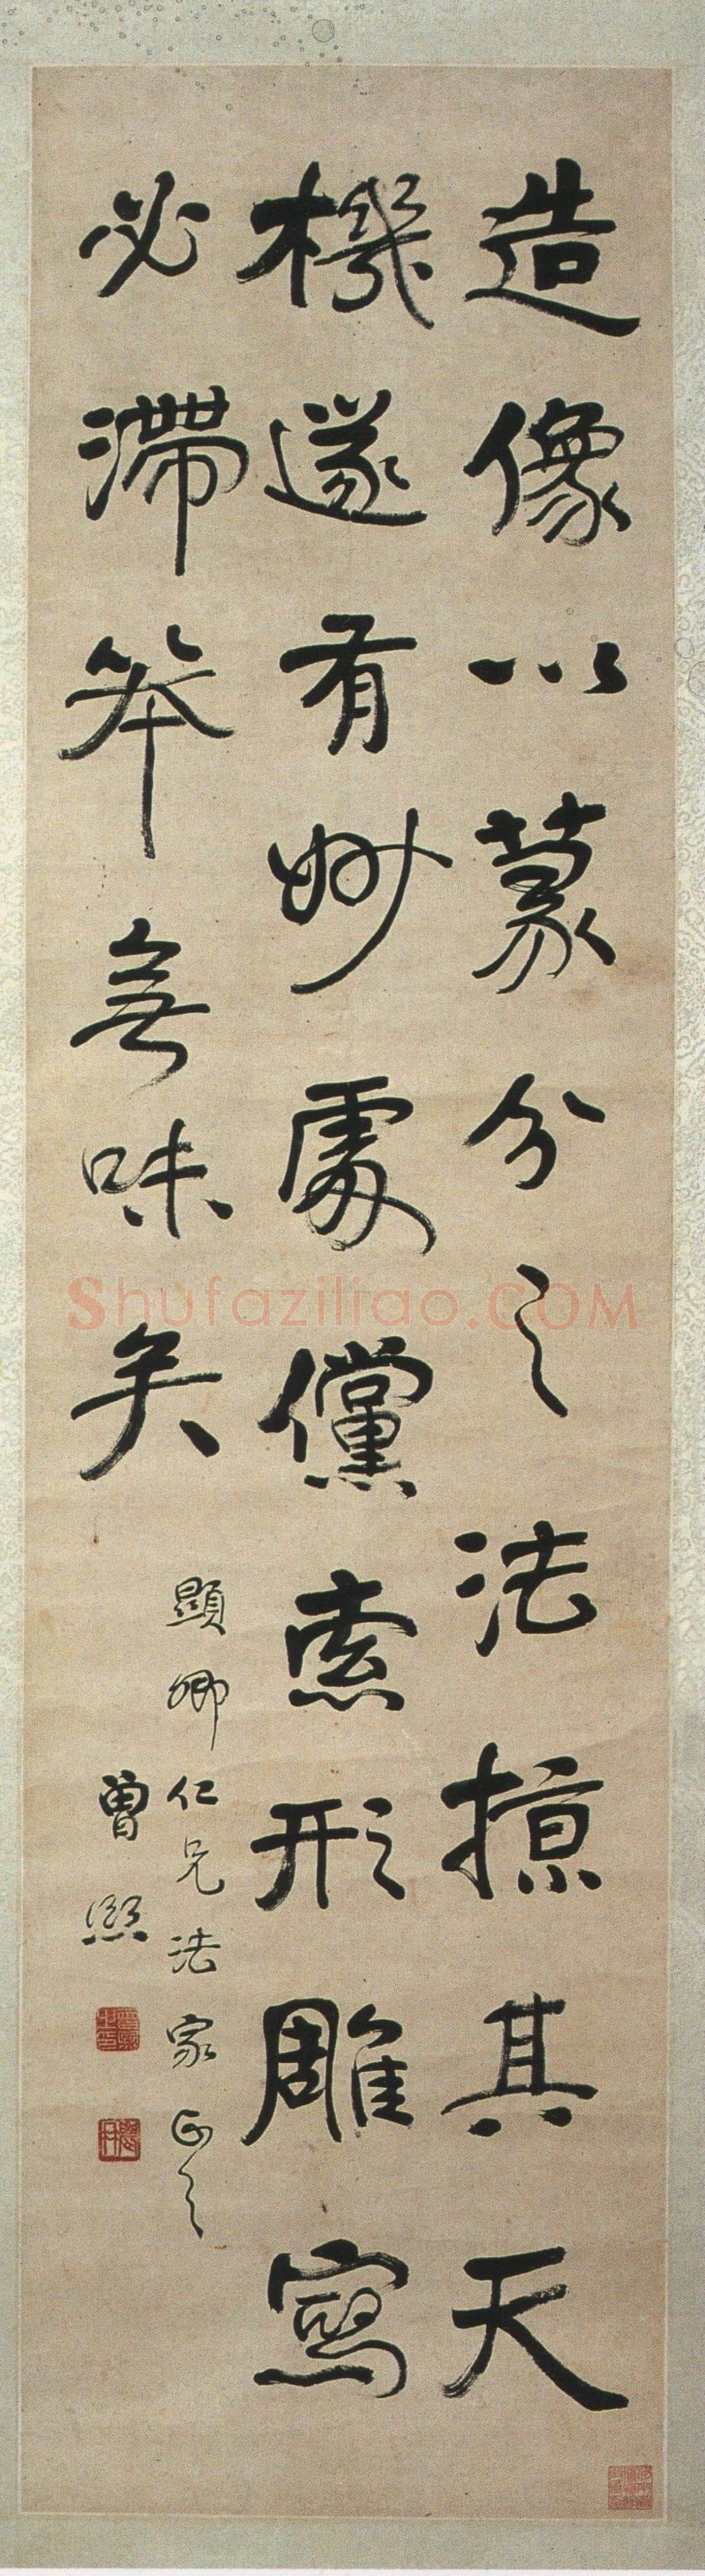 造像以篆分之法掠其天
機遂有妙處儻索形雕寫
必滯笨無味矣
顯卿仁兄法家正之
曾熙
Shufaziliao.COM